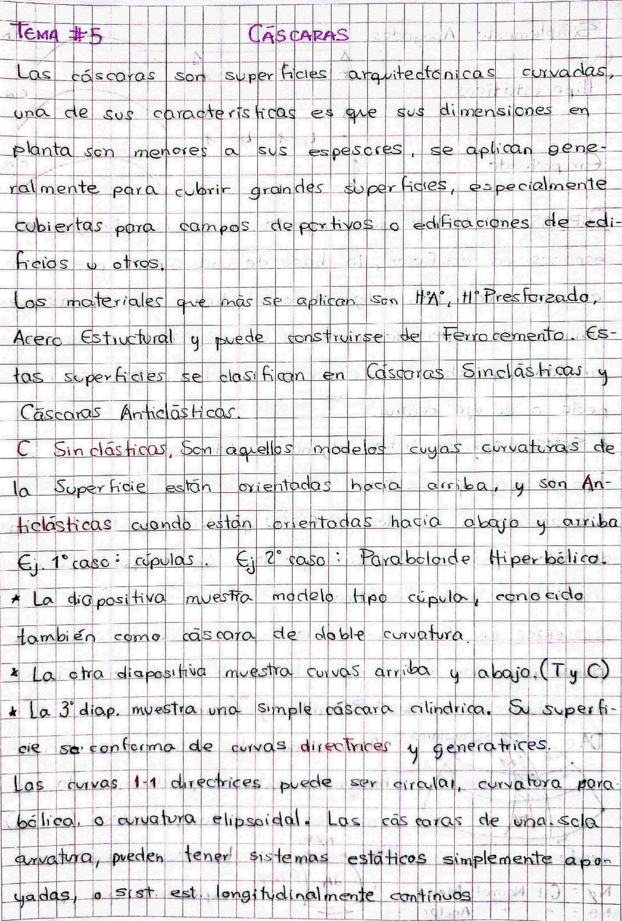 TEMA #5 CÁSCARAS
Las cáscaras son superficies arquitectónicas curvadas,
una de sus características es que sus dimensiones en
planta son menores a sus espesores, se aplican gene-
ralmente para cubrir grandes superficies, especialmente
cubiertas para campos deportivos o edificaciones de edi-
ficios u otros.
Los materiales que más se aplican son HºAº, Hº Presforzado,
Acero Estructural y puede construirse de Ferrocemento. Es-
tas superficies se clasifican en Cáscaras Sinclásticas y
Cáscaras Anticlásticas.
C Sinclásticas, Son aquellos modelos cuyas curvaturas de
la Superficie están orientadas hacia arriba, y son An-
ticlásticas cuando están orientadas hacia abajo y arriba
Ej. 1º caso: cúpulas. Ej 2º caso: Paraboloide Hiperbólico.
* La diapositiva muestra modelo tipo cúpula, conocido
también como cáscara de doble curvatura.
* La otra diapositiva muestra curvas arriba y abajo. (T y C)
* La 3º diap. muestra una simple cáscara cilíndrica. Su superfi-
cie se conforma de curvas directrices y generatrices.
Las curvas 1-1 directrices puede ser circular, curvatura para-
bólica, o curvatura elipsoidal. Las cáscaras de una sola
curvatura, pueden tener sistemas estáticos simplemente apo-
yadas, o sist. est. longitudinalmente continuos